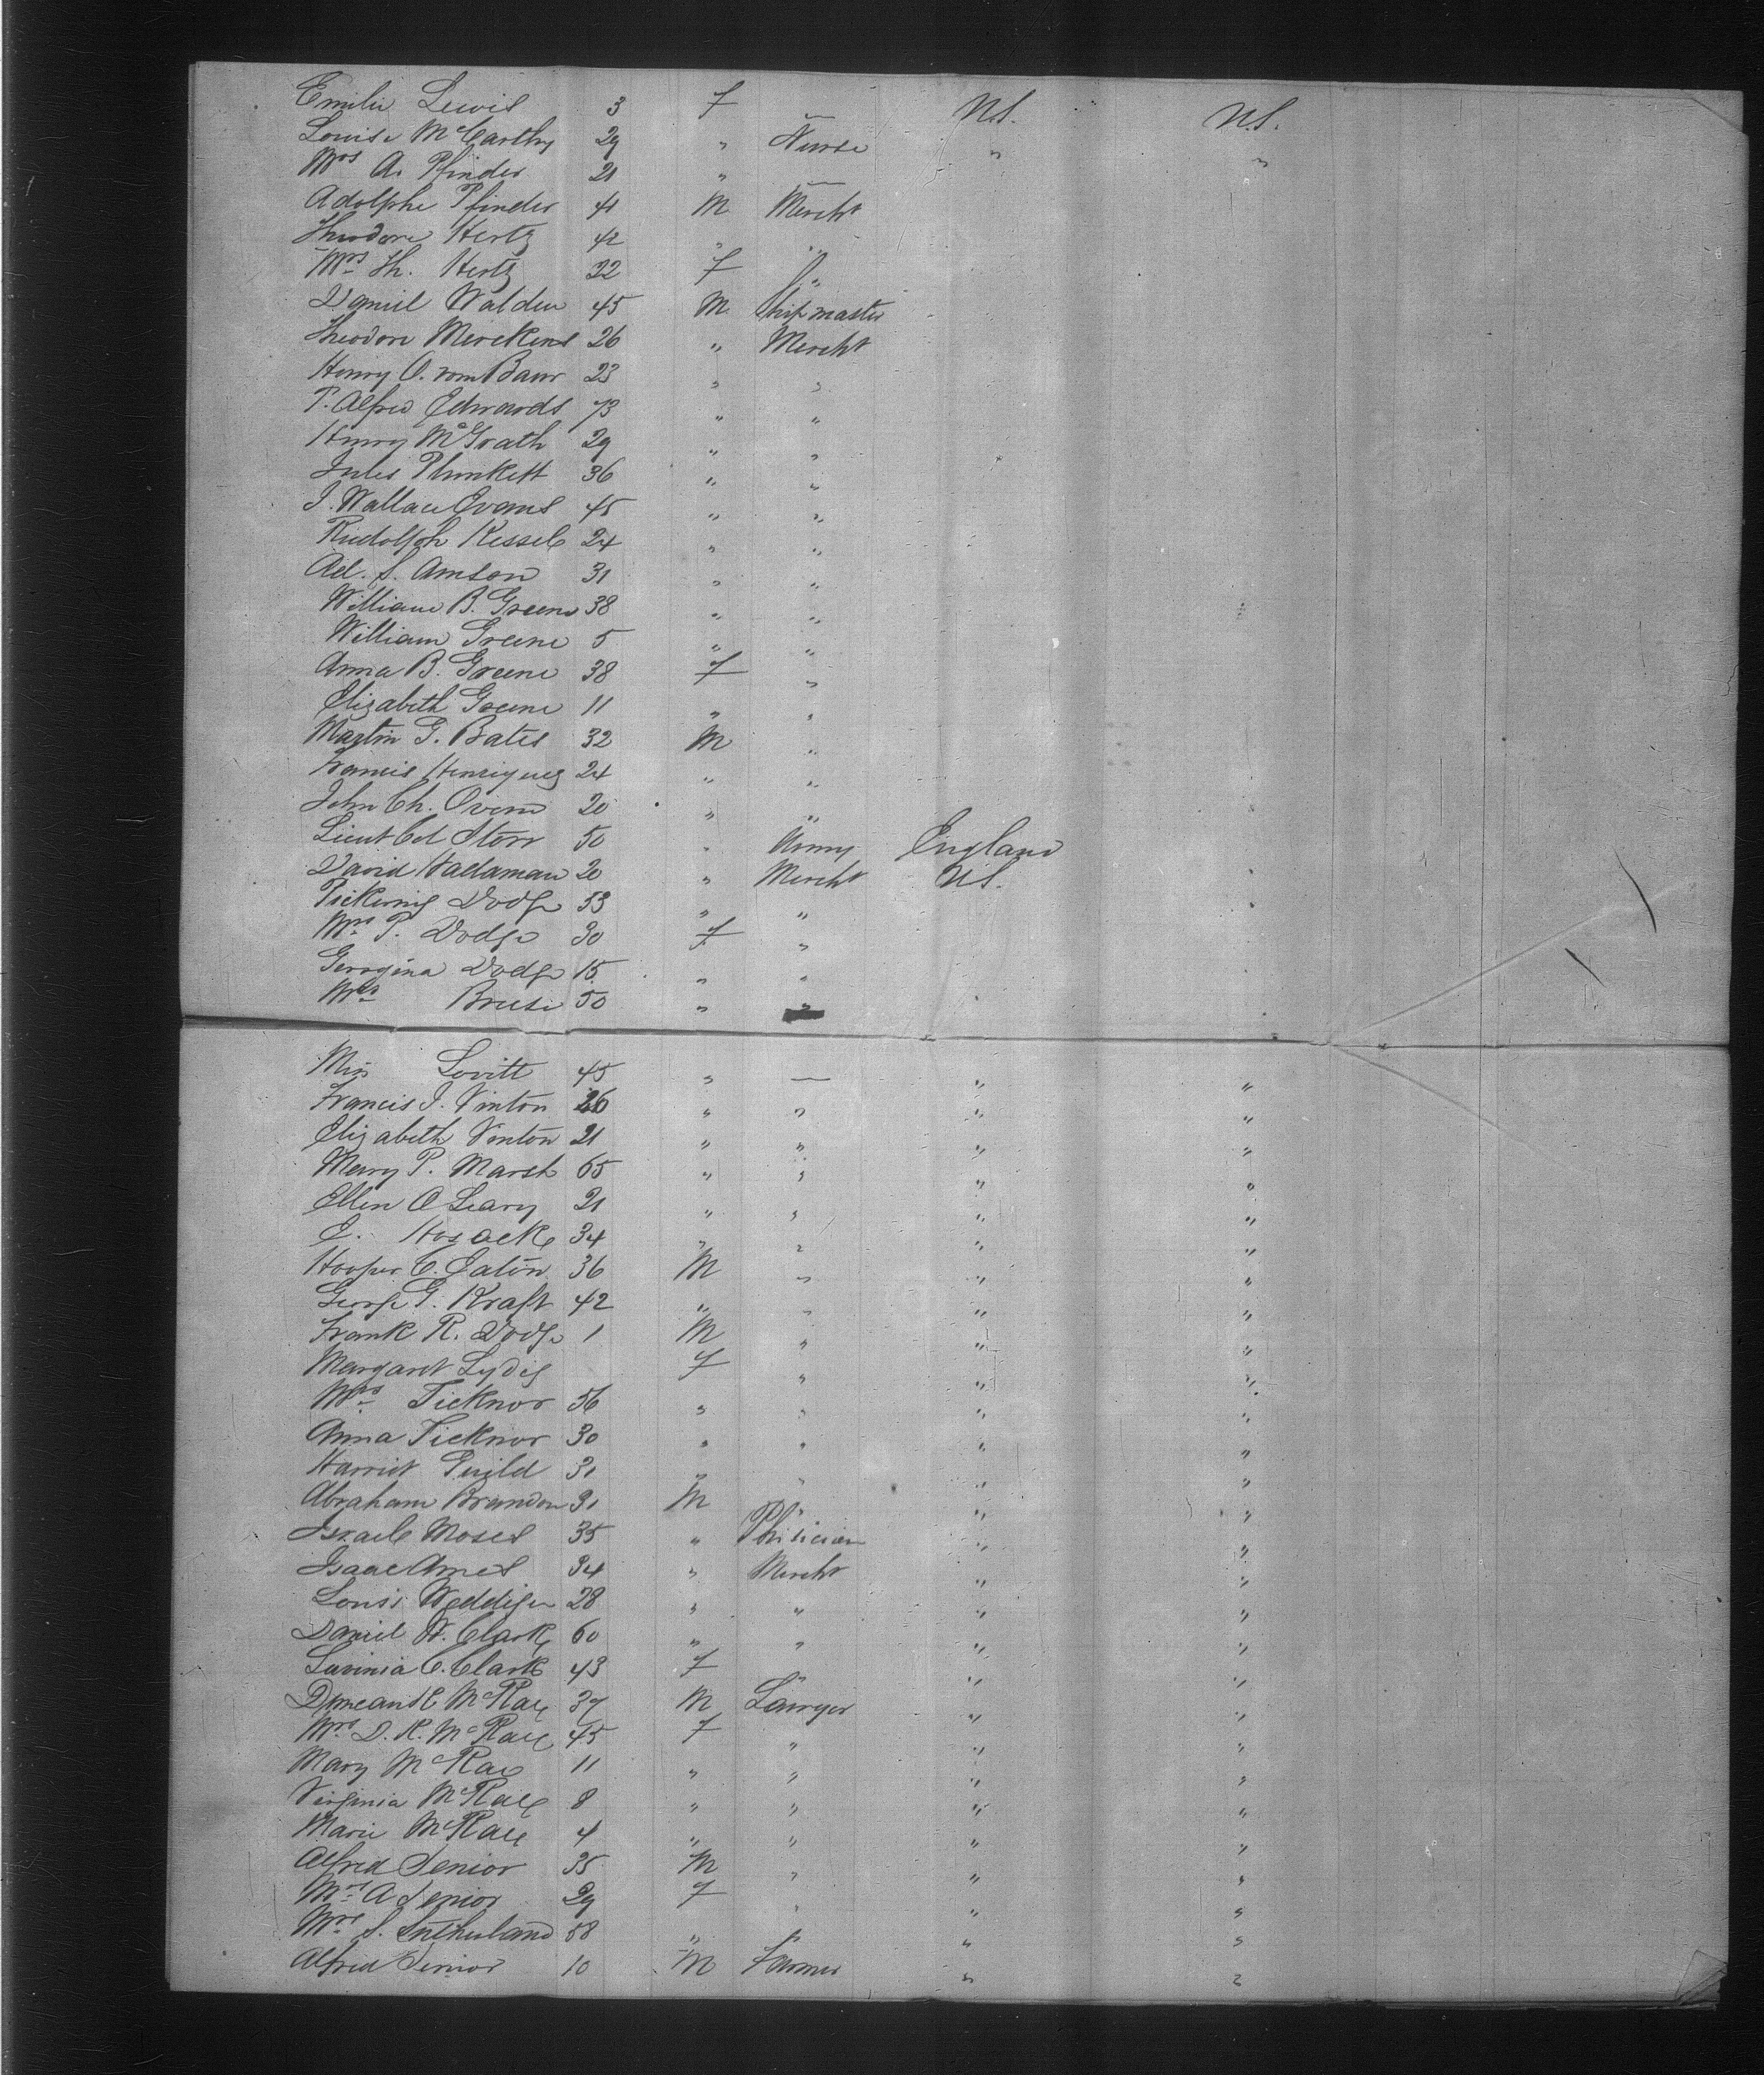 Emilie Lewis 3 F — U.S. U.S.
Louise McCarthy 29 " Nurse " "
Mrs A. Pfinder 21 " —
Adolphe Pfinder 41 M Mercht
Theodore Hertz 42 " "
Mrs Th. Hertz 22 F "
Daniel Walden 45 M Shipmaster
Theodore Merckens 26 " Mercht
Henry O. vom Baur 23 " "
P. Alfred Edwards 73 " "
Henry McGrath 29 " "
Jules Plunkett 36 " "
J. Wallace Evans 45 " "
Rudolph Kessel 24 " "
Ad. S. Amson 31 " "
William B. Greene 38 " "
William Greene 5 " "
Anna B. Greene 38 F "
Elizabeth Greene 11 " "
Martin G. Bates 32 M "
Francis Henriques 24 " "
John Ch. 20 " "
Lieut Col Storr 50 " Army England
David Hadaman 20 " Mercht US.
Pickering Dodge 53 " "
Mrs P. Dodge 30 F "
Georgina Dodge 15 " "
Mrs 50 "
Miss Lovitt 45 " — " "
Francis J. Vinton 26 " " " "
Elizabeth Vinton 21 " " " "
Mary P. Marsh 65 " " " "
Ellen O Leary 21 " " " "
E. Hosack 34 " " " "
Hooper C. Eaton 36 M " " "
George G. Kraft 42 " " " "
Frank R. Dodge 1 M " " "
Margaret Lydig F " " "
Mrs Ticknor 56 " " " "
Anna Ticknor 30 " " " "
Harriet Guild 31 " " " "
Abraham Brandon 31 M " " "
Israel Moses 35 " Phisician " "
Isaac Ames 34 " Mercht " "
Louis Weddigen 28 " " " "
Daniel W. Clark 60 " " " "
Lavinia C. Clark 43 F " " "
Duncan K McRae 37 M Lawyer " "
Mrs D. K. McRae 45 F " " "
Mary McRae 11 " " " "
Virginia McRae 8 " " " "
Marie McRae 4 " " " "
Alfred Senior 35 M " " "
Mrs A Senior 29 F " " "
Mrs S. Sutherland 58 " " " "
Alfred Senior 10 M Farmer " "